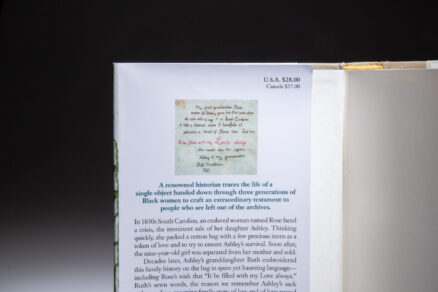 U.S.A. $28.00
Canada $37.00
My great grandmother Rose
mother of Ashley gave her this sack when
she was sold at age 9 in South Carolina
it held a tattered dress 3 handfulls of
pecans a braid of Roses hair. Told her
It be filled with my Love always
she never saw her again
Ashley is my grandmother
Ruth Middleton
1921
A renowned historian traces the life of a
single object handed down through three generations of
Black women to craft an extraordinary testament to
people who are left out of the archives.
In 1850s South Carolina, an enslaved woman named Rose faced
a crisis, the imminent sale of her daughter Ashley. Thinking
quickly, she packed a cotton bag with a few precious items as a
token of love and to try to ensure Ashley's survival. Soon after,
the nine-year-old girl was separated from her mother and sold.
Decades later, Ashley's granddaughter Ruth embroidered
this family history on the bag in spare yet haunting language—
including Rose's wish that "It be filled with my Love always."
Ruth's sewn words, the reason we remember Ashley's sack